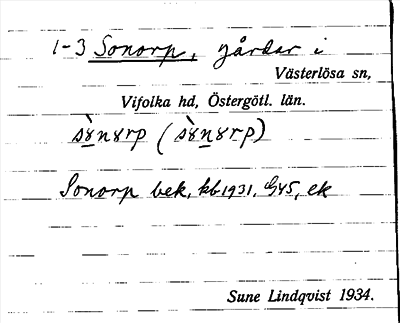 1-3 Sonorp, gårdar i
Västerlösa sn,
Vifolka hd, Östergötl. län.
sɤ̀nɤrp (sɤ̀nɤrp)
Sonorp bek, kb 1931, GV5, ek
Sune Lindqvist 1934.